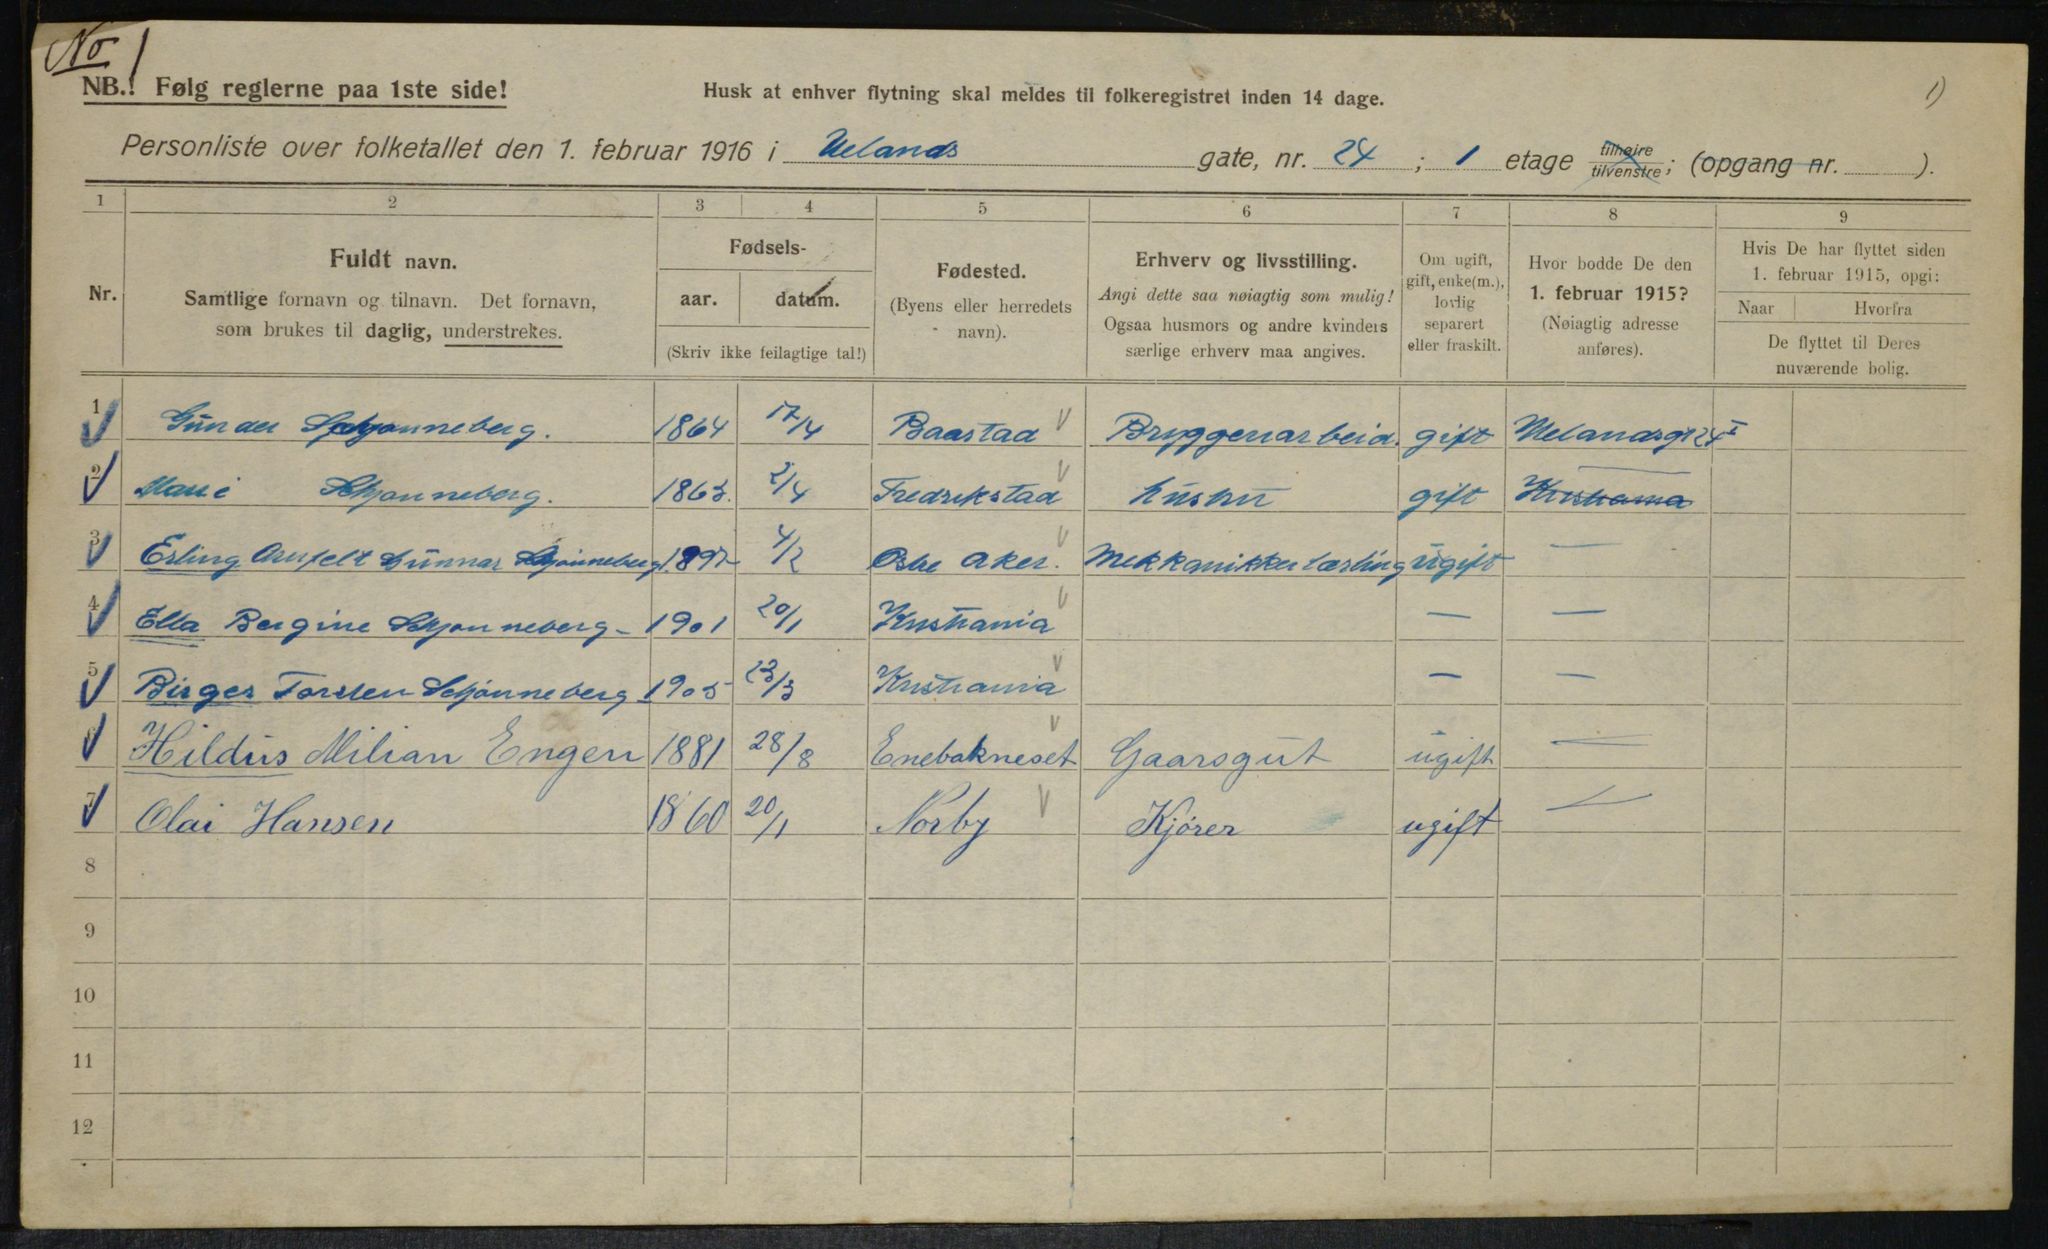 No 1
NB.! Følg reglerne paa 1ste side!
Husk at enhver flytning skal meldes til folkeregistret inden 14 dage.
1)
Personliste over folketallet den 1. februar 1916 i Uelands gate, nr. 24 ; 1 etage tilhøire tilvenstre ; (opgang nr. ).
1 2 3 4 5 6 7 8 9
Nr.
Fuldt navn.
Samtlige fornavn og tilnavn. Det fornavn,
som brukes til daglig, understrekes.
Fødsels-
aar. datum.
(Skriv ikke feilagtige tal!)
Fødested.
(Byens eller herredets
navn).
Erhverv og livsstilling.
Angi dette saa nøiagtig som mulig!
Ogsaa husmors og andre kvinders
særlige erhverv maa angives.
Om ugift,
gift, enke(m.),
lovlig
separert
eller fraskilt.
Hvor bodde De den
1. februar 1915?
(Nøiagtig adresse
anføres).
Hvis De har flyttet siden
1. februar 1915, opgi:
Naar Hvorfra
De flyttet til Deres
nuværende bolig.
1 Gunder Schjønneberg. 1864 17/4 Baastad Bryggenarbeid. gift Uelandsgt 24 I
2 Marie Schjønneberg. 1863. 2/4 Fredrikstad husm gift Kristiania
3 Erling Gunnar Schjønneberg. 1897 4/2 Østre Aker. Mekkanikker Lærling ugift —
4 Ella Bergine Schjønneberg - 1901 20/1 Kristiania — —
5 Birger Torsten Schjønneberg - 1905 23/3 Kristiania — —
6 Hildus Milian Engen 1881 28/8 Enebakneset Gaarsgut ugift —
7 Olai Hansen 1860 20/1 Norby Kjører ugift —
8
9
10
11
12